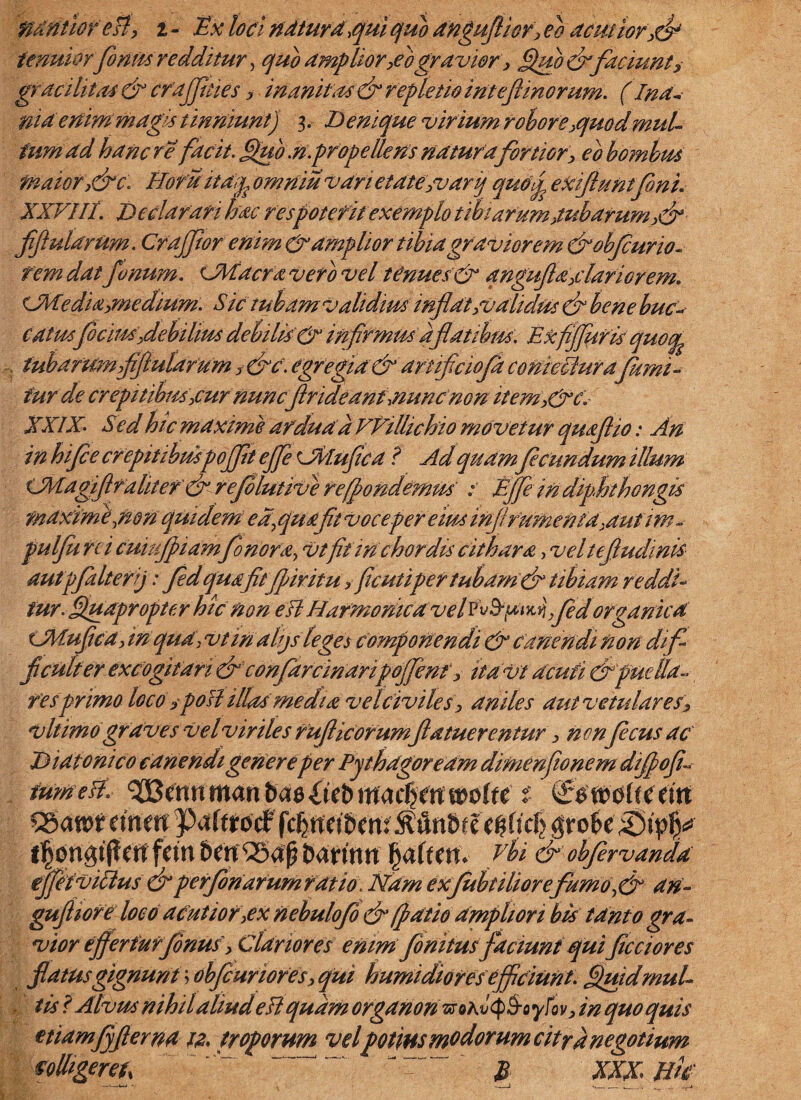 nantior est, 2- Ex loci natura, qui quo angustior, eo acutior, &
tenuior sonus redditur, quo amplior, eo gravior, Quo & faciunt,
gracilitas & crassities, inanitas & repletio intestinorum. (Ina-
nia enim magis tinniunt) 3. Denique virium robore, quod mul-
tum ad hanc rē facit. Quo .n. propellens natura fortior, eo bombus
maior, &c. Horū itaq; omniū varietate, varij quoq; existunt soni.
XXVIII. Declarari hæc res poterit exemplo tibiarum, tubarum, &
fistularum. Crassior enim & amplior tibia graviorem & obscurio-
rem dat sonum. Macræ vero vel tenues & angustæ, clariorem.
Mediæ, medium. Sic tubam validius inflat, validus & bene buc-
catus socius, debilius debilis & infirmus a flatibus. Ex fissuris quoq;
tubarum, fistularum, &c. egregia & artificiosa coniectura sumi-
tur de crepitibus, cur nunc strideant, nunc non item, &c.
XXIX. Sed hic maxime ardua à VVillichio movetur quæstio: An
in hisce crepitibus possit esse Musica? Ad quam secundum illum
Magistraliter & resolutive respondemus: Esse in diphthongis
maxime, non quidem ea, quæ fit voce per eius instrumenta, aut im-
pulsu rei cuiuspiam sonoræ, vt fit in chordis citharæ, vel testudinis
aut psalterij: sed quæ fit spiritu, sicuti per tubam & tibiam reddi-
tur. Quapropter hic non est Harmonica vel Ρυθμικὴ, sed organica
Musica, in qua, vt in alijs leges componendi & canendi non dif-
ficulter excogitari & consarcinari possent, ita vt acuti & puella-
res primo loco, post illas mediæ vel civiles, aniles aut vetulares,
vltimo graves vel viriles rusticorum statuerentur, non secus ac
Diatonico canendi genere per Pythagoream dimensionem disposi-
tum est. Wenn man das Lied machen wolte: Es wolte ein
Bawr einen Paltrock schneidem: Kündte es etlich grobe Diph-
thongisten sein den Baß darinn halten. Vbi & observanda
esset victus & personarum ratio. Nam ex subtiliore fumo, & an-
gustiore loco acutior, ex nebuloso & spatio ampliori bis tanto gra-
vior effertur sonus, Clariores enim sonitus faciunt qui sicciores
flatus gignunt; obscuriores, qui humidiores efficiunt. Quid mul-
tis? Alvus nihil aliud est quam organon πολύφθογγον, in quo quis
etiam systerna 12. troporum vel potius modorum citra negotium
colligeret.
B XXX. Hic